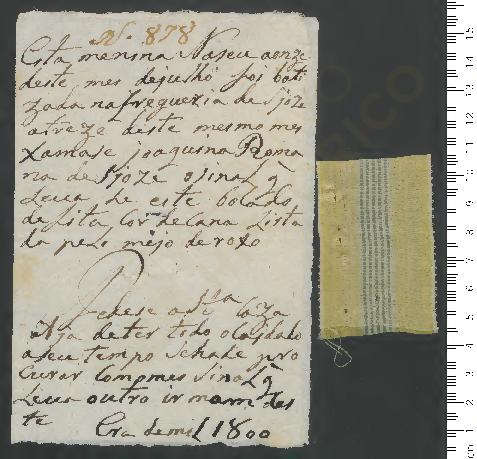 N. 878
Esta menina Naseu aonze
deste mes dejulho foi bati
zada nafreguezia de S joze
atreze deste mesmo mes
Xamase joaquina Roma
na de S joze osinal q
Leva he este bocado
de fita Cor de Cana Lista
da pelo mejo de roxo
Pedese a S.ta Caza
Aja deter todo o Cuidado
aseu tempo Sehade pro
Curar Commes Sinal q
Leva outro irmam des
te Era de mil 1800